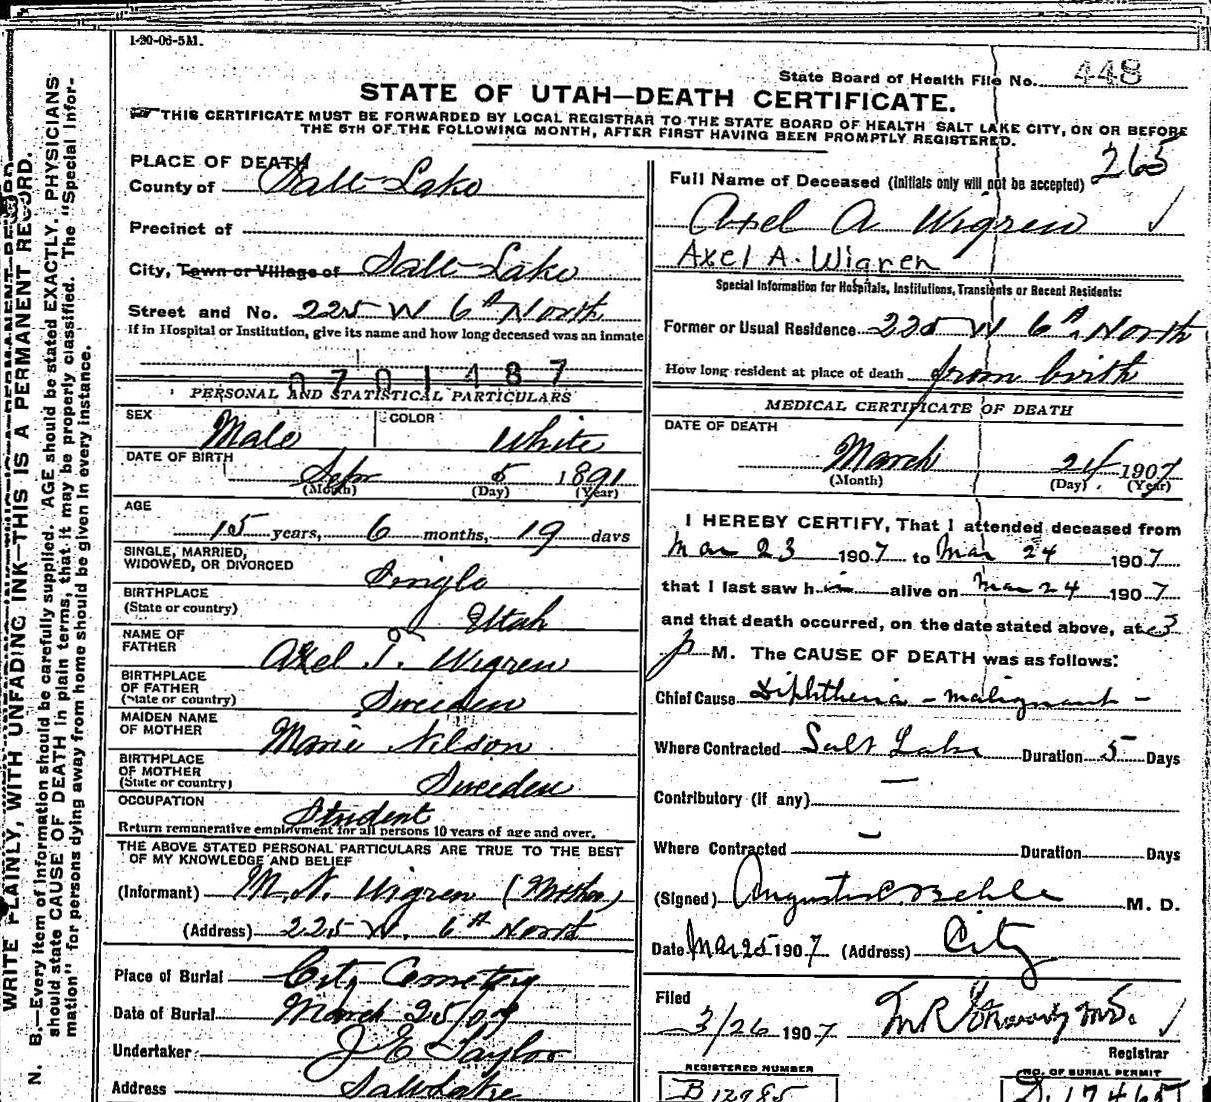 1-20-06-5M.
State Board of Health File No. 448
STATE OF UTAH—DEATH CERTIFICATE.
THIS CERTIFICATE MUST BE FORWARDED BY LOCAL REGISTRAR TO THE STATE BOARD OF HEALTH SALT LAKE CITY, ON OR BEFORE
THE 5TH OF THE FOLLOWING MONTH, AFTER FIRST HAVING BEEN PROMPTLY REGISTERED.
265
PLACE OF DEATH
County of Salt Lake
Precinct of
City, Town or Village of Salt Lake
Street and No. 225 W 6th North
If in Hospital or Institution, give its name and how long deceased was an inmate
0701487
PERSONAL AND STATISTICAL PARTICULARS
SEX Male COLOR White
DATE OF BIRTH Sepr 5 1891
(Month) (Day) (Year)
AGE
15 years, 6 months, 19 days
SINGLE, MARRIED,
WIDOWED, OR DIVORCED Single
BIRTHPLACE
(State or country) Utah
NAME OF
FATHER Axel T. Wigren
BIRTHPLACE
OF FATHER
(State or country) Sweden
MAIDEN NAME
OF MOTHER Marie Nilson
BIRTHPLACE
OF MOTHER
(State or country) Sweden
OCCUPATION Student
Return remunerative employment for all persons 10 years of age and over.
THE ABOVE STATED PERSONAL PARTICULARS ARE TRUE TO THE BEST
OF MY KNOWLEDGE AND BELIEF
(Informant) M. N. Wigren (Mother)
(Address) 225 W. 6th North
Place of Burial City Cemetery
Date of Burial March 25/07
Undertaker J E Taylor
Address Salt Lake
Full Name of Deceased (Initials only will not be accepted)
Axel A Wigren
Axel A. Wigren
Special Information for Hospitals, Institutions, Transients or Recent Residents:
Former or Usual Residence 225 W 6th North
How long resident at place of death from birth
MEDICAL CERTIFICATE OF DEATH
DATE OF DEATH
March 24 1907
(Month) (Day) (Year)
I HEREBY CERTIFY, That I attended deceased from
Mar 23 1907 to Mar 24 1907
that I last saw him alive on Mar 24 1907
and that death occurred, on the date stated above, at 3
p M. The CAUSE OF DEATH was as follows:
Chief Cause Diphtheria - malignant -
Where Contracted Salt Lake Duration 5 Days
Contributory (if any) —
Where Contracted — Duration Days
(Signed) Augustus C Behle M. D.
Date Mar 25 1907 (Address) City
Filed
3/26 1907
Registrar
REGISTERED NUMBER
B 12985
NO. OF BURIAL PERMIT
D. 17465
WRITE PLAINLY, WITH UNFADING INK—THIS IS A PERMANENT RECORD.
N. B.—Every item of information should be carefully supplied. AGE should be stated EXACTLY. PHYSICIANS
should state CAUSE OF DEATH in plain terms, that it may be properly classified. The "Special Infor-
mation" for persons dying away from home should be given in every instance.